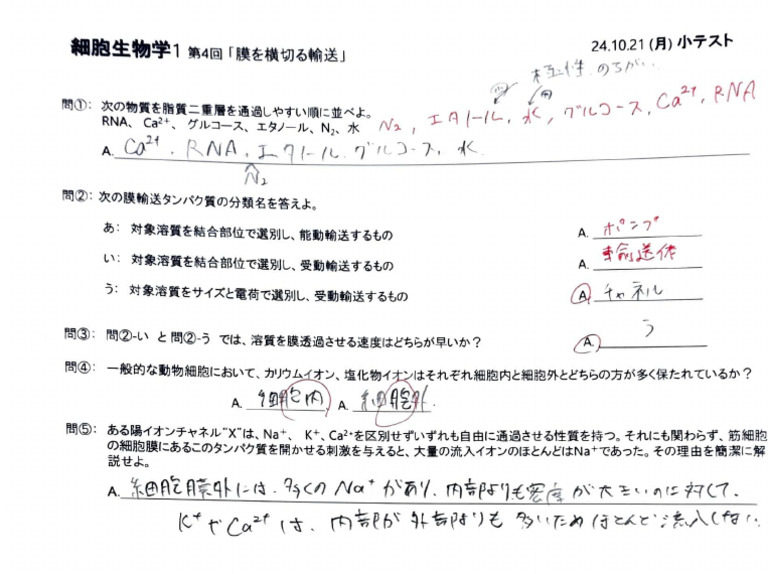 細胞生物学1 第4回「膜を横切る輸送」
24.10.21 (月) 小テスト
極性のちがい
問①: 次の物質を脂質二重層を通過しやすい順に並べよ。
RNA、Ca²⁺、グルコース、エタノール、N₂、水
N₂, エタノール, 水, グルコース, Ca²⁺, RNA
A. Ca²⁺. RNA. エタノール. グルコース. 水.
N₂
問②: 次の膜輸送タンパク質の分類名を答えよ。
あ: 対象溶質を結合部位で選別し、能動輸送するもの
A. ポンプ
い: 対象溶質を結合部位で選別し、受動輸送するもの
A. 輸送体
う: 対象溶質をサイズと電荷で選別し、受動輸送するもの
A. チャネル
問③: 問②-い と 問②-う では、溶質を膜透過させる速度はどちらが早いか?
A. う
問④: 一般的な動物細胞において、カリウムイオン、塩化物イオンはそれぞれ細胞内と細胞外とどちらの方が多く保たれているか?
A. 細胞内 A. 細胞外.
問⑤: ある陽イオンチャネル"X"は、Na⁺、 K⁺、Ca²⁺を区別せずいずれも自由に通過させる性質を持つ。それにも関わらず、筋細胞
の細胞膜にあるこのタンパク質を開かせる刺激を与えると、大量の流入イオンのほとんどはNa⁺であった。その理由を簡潔に解
説せよ。
A. 細胞膜外には、多くのNa⁺があり、内部よりも密度が大きいのに対して、
K⁺やCa²⁺は、内部が外部よりも多いためほとんど流入しない